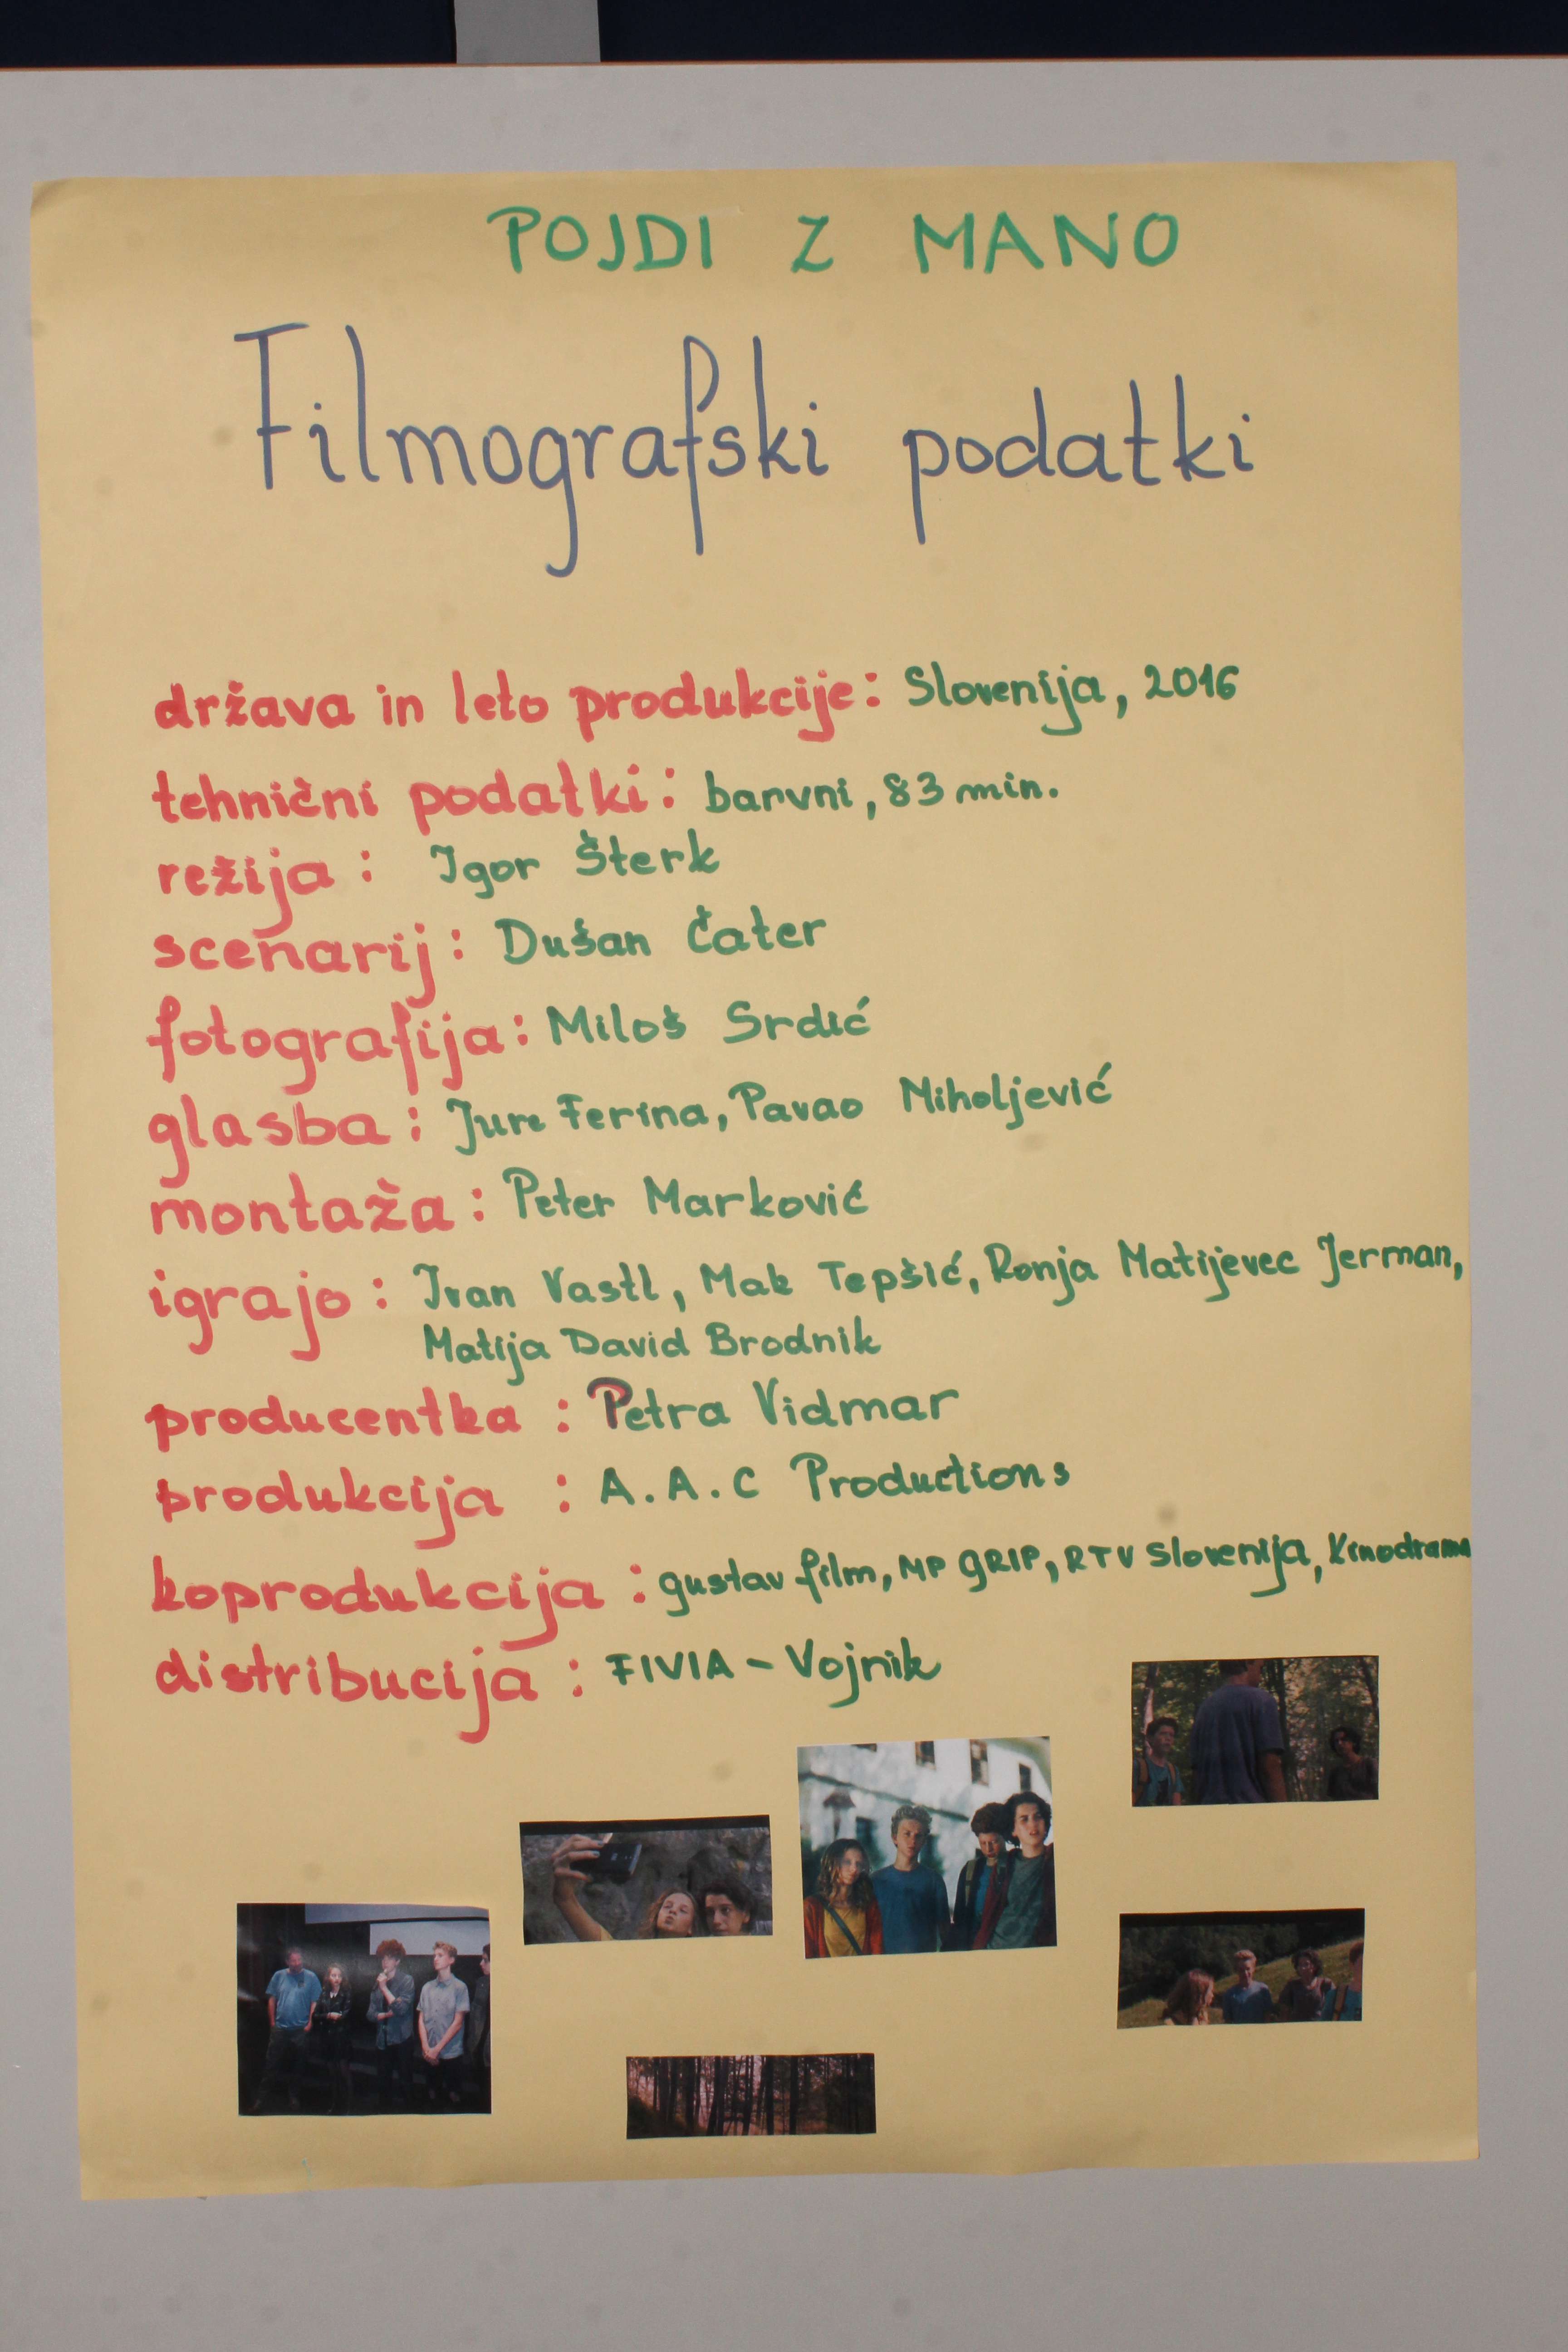 POJDI Z MANO
Filmografski podatki
država in leto produkcije: Slovenija, 2016
tehnični podatki: barvni, 83 min.
režija: Igor Šterk
scenarij: Dušan Čater
fotografija: Miloš Srdić
glasba: Jure Ferina, Pavao Miholjević
montaža: Peter Marković
igrajo: Ivan Vastl, Mak Tepšić, Ronja Matijevec Jerman,
Matija David Brodnik
producentka: Petra Vidmar
produkcija: A.A.C Productions
koprodukcija: gustav film, MP GRIP, RTV Slovenija, Kinodrama
distribucija: FIVIA - Vojnik